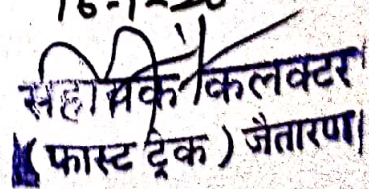 सहायक कलक्टर
(फास्ट ट्रेक) जैतारण।